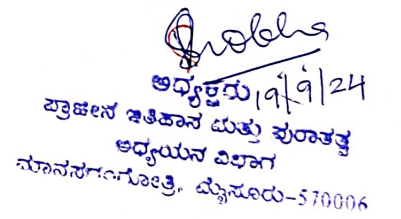 Shobha
ಅಧ್ಯಕ್ಷರು 19/9/24
ಪ್ರಾಚೀನ ಇತಿಹಾಸ ಮತ್ತು ಪುರಾತತ್ವ
ಅಧ್ಯಯನ ವಿಭಾಗ
ಮಾನಸಗಂಗೋತ್ರಿ, ಮೈಸೂರು-570006